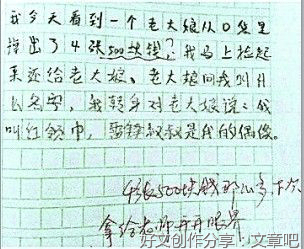 我今天看到一个老大娘从口袋里
掉出了4张500块钱?我马上捡起
来还给老大娘、老大娘问我叫什
么名字,我转身对老大娘说:我
叫红领巾,雷锋叔叔是我的偶像。
4张500块钱那么多下次
拿给老师开开眼界
好文创作分享·文章吧